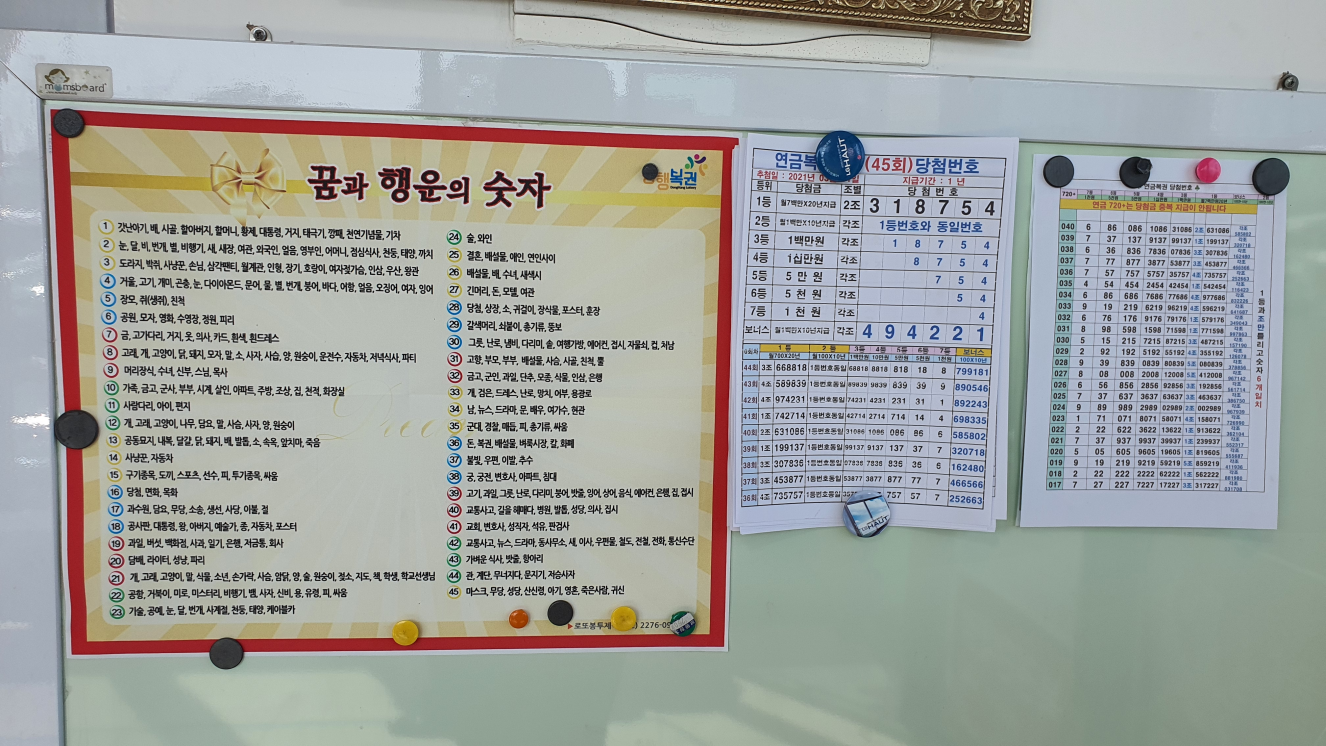 momsboard
꿈과 행운의 숫자
행복권
1 갓난아기, 배, 시골, 할아버지, 할머니, 황제, 대통령, 거지, 태극기, 깡패, 천연기념물, 기차
2 눈, 달, 비, 번개, 별, 비행기, 새, 새장, 여관, 외국인, 얼음, 영부인, 어머니, 점심식사, 천둥, 태양, 까치
3 도라지, 박쥐, 사냥꾼, 손님, 삼각팬티, 월계관, 인형, 장기, 호랑이, 여자젖가슴, 인삼, 우산, 왕관
4 거울, 고기, 개미, 곤충, 눈, 다이아몬드, 문어, 물, 별, 번개, 붕어, 바다, 어항, 얼음, 오징어, 여자, 잉어
5 장모, 쥐(생쥐), 친척
6 공원, 모자, 영화, 수영장, 정원, 피리
7 금, 고가다리, 거지, 옷, 의사, 카드, 흰색, 흰드레스
8 고래, 개, 고양이, 닭, 돼지, 모자, 말, 소, 사자, 사슴, 양, 원숭이, 운전수, 자동차, 저녁식사, 파티
9 머리장식, 수녀, 신부, 스님, 목사
10 가족, 금고, 군사, 부부, 시계, 살인, 아파트, 주방, 조상, 집, 천적, 화장실
11 사람다리, 아이, 편지
12 개, 고래, 고양이, 나무, 담요, 말, 사슴, 사자, 양, 원숭이
13 공동묘지, 내복, 달걀, 닭, 돼지, 배, 발톱, 소, 속옷, 앞치마, 죽음
14 사냥꾼, 자동차
15 구기종목, 도끼, 스포츠, 선수, 피, 투기종목, 싸움
16 당첨, 면화, 목화
17 과수원, 담요, 무당, 소송, 생선, 사당, 이불, 절
18 공사판, 대통령, 왕, 아버지, 예술가, 종, 자동차, 포스터
19 과일, 버섯, 백화점, 사과, 일기, 은행, 저금통, 회사
20 담배, 라이터, 성냥, 파리
21 개, 고래, 고양이, 말, 식물, 소년, 손가락, 사슴, 암닭, 양, 술, 원숭이, 젖소, 지도, 책, 학생, 학교선생님
22 공항, 거북이, 미로, 미스터리, 비행기, 뱀, 사자, 신비, 용, 유령, 피, 싸움
23 기술, 공예, 눈, 달, 번개, 사계절, 천둥, 태양, 케이블카
24 술, 와인
25 결혼, 배설물, 애인, 연인사이
26 배설물, 배, 수녀, 새색시
27 긴머리, 돈, 모델, 여관
28 당첨, 상장, 소, 귀걸이, 장식물, 포스터, 훈장
29 갈색머리, 쇠붙이, 총기류, 뚱보
30 그릇, 난로, 냄비, 다리미, 솥, 여행가방, 에어컨, 접시, 자물쇠, 컵, 처남
31 고향, 부모, 부부, 배설물, 사슴, 시골, 친척, 뿔
32 금고, 군인, 과일, 단추, 모종, 식물, 인삼, 은행
33 개, 검은, 드레스, 난로, 망치, 어부, 용광로
34 남, 뉴스, 드라마, 문, 배우, 여가수, 현관
35 군대, 경찰, 매듭, 피, 총기류, 싸움
36 돈, 복권, 배설물, 벼룩시장, 칼, 화폐
37 불빛, 우편, 이발, 추수
38 궁, 궁전, 변호사, 아파트, 침대
39 고기, 과일, 그릇, 난로, 다리미, 붕어, 밧줄, 잉어, 상어, 음식, 에어컨, 은행, 집, 접시
40 교통사고, 길을 헤매다, 병원, 발톱, 성당, 의사, 집시
41 교회, 변호사, 성직자, 석유, 판검사
42 교통사고, 뉴스, 드라마, 동사무소, 새, 이사, 우편물, 철도, 전철, 전화, 통신수단
43 가벼운 식사, 밧줄, 항아리
44 관, 계단, 무너지다, 문지기, 저승사자
45 마스크, 무당, 성당, 산신령, 아기, 영혼, 죽은사람, 귀신
▶로또봉투제 2276-09
연금복 (45회) 당첨번호
추첨일 : 2021년 지급기간 : 1 년
등위 당첨금 조별 당 첨 번 호
1등 월7백만X20년지급 2조 3 1 8 7 5 4
2등 월1백만X10년지급 각조 1등번호와 동일번호
3등 1백만원 각조 1 8 7 5 4
4등 1십만원 각조 8 7 5 4
5등 5 만 원 각조 7 5 4
6등 5 천 원 각조 5 4
7등 1 천 원 각조 4
보너스 월1백만X10년지급 각조 4 9 4 2 2 1
1 등 2 등 3등 4등 5등 6등 7등 보너스
월700X20년 월100X10년 1백만원 10만원 5만원 5천원 1천원 100X10년
44회 3조 668818 1등번호동일 68818 8818 818 18 8 799181
43회 4조 589839 1등번호동일 89839 9839 839 39 9 890546
42회 4조 974231 1등번호동일 74231 4231 231 31 1 892243
41회 1조 742714 1등번호동일 42714 2714 714 14 4 698335
40회 2조 631086 1등번호동일 31086 1086 086 86 6 585802
39회 1조 199137 1등번호동일 99137 9137 137 37 7 320718
38회 3조 307836 1등번호동일 07836 7836 836 36 6 162480
37회 3조 453877 1등번호동일 53877 3877 877 77 7 466566
36회 4조 735757 1등번호동일 757 57 7 252663
연금복권 당첨번호
720+
연금 720+는 당첨금 중복 지급이 안됩니다
040 6 86 086 1086 31086 2조 631086 각조 585802
039 7 37 137 9137 99137 1조 199137 각조 320718
038 6 36 836 7836 07836 3조 307836 각조 162480
037 7 77 877 3877 53877 3조 453877 각조 466566
036 7 57 757 5757 35757 4조 735757 각조 252663
035 4 54 454 2454 42454 1조 542454
034 6 86 686 7686 77686 4조 977686
033 9 19 219 6219 96219 4조 596219
032 6 76 176 9176 79176 1조 579176
031 8 98 598 1598 71598 1조 771598
030 5 15 215 7215 87215 3조 487215
029 2 92 192 5192 55192 4조 355192
028 9 39 839 0839 80839 5조 080839
027 8 08 008 2008 12008 5조 412008
026 6 56 856 2856 92856 3조 192856
025 7 37 637 3637 63637 3조 463637
024 9 89 989 2989 02989 2조 002989
023 1 71 071 8071 58071 4조 158071
022 2 22 622 3622 13622 1조 913622
021 7 37 937 9937 39937 1조 239937
020 5 05 605 9605 19605 1조 819605
019 9 19 219 9219 59219 5조 859219
018 2 22 222 2222 62222 1조 562222
017 7 27 227 7227 17227 3조 317227